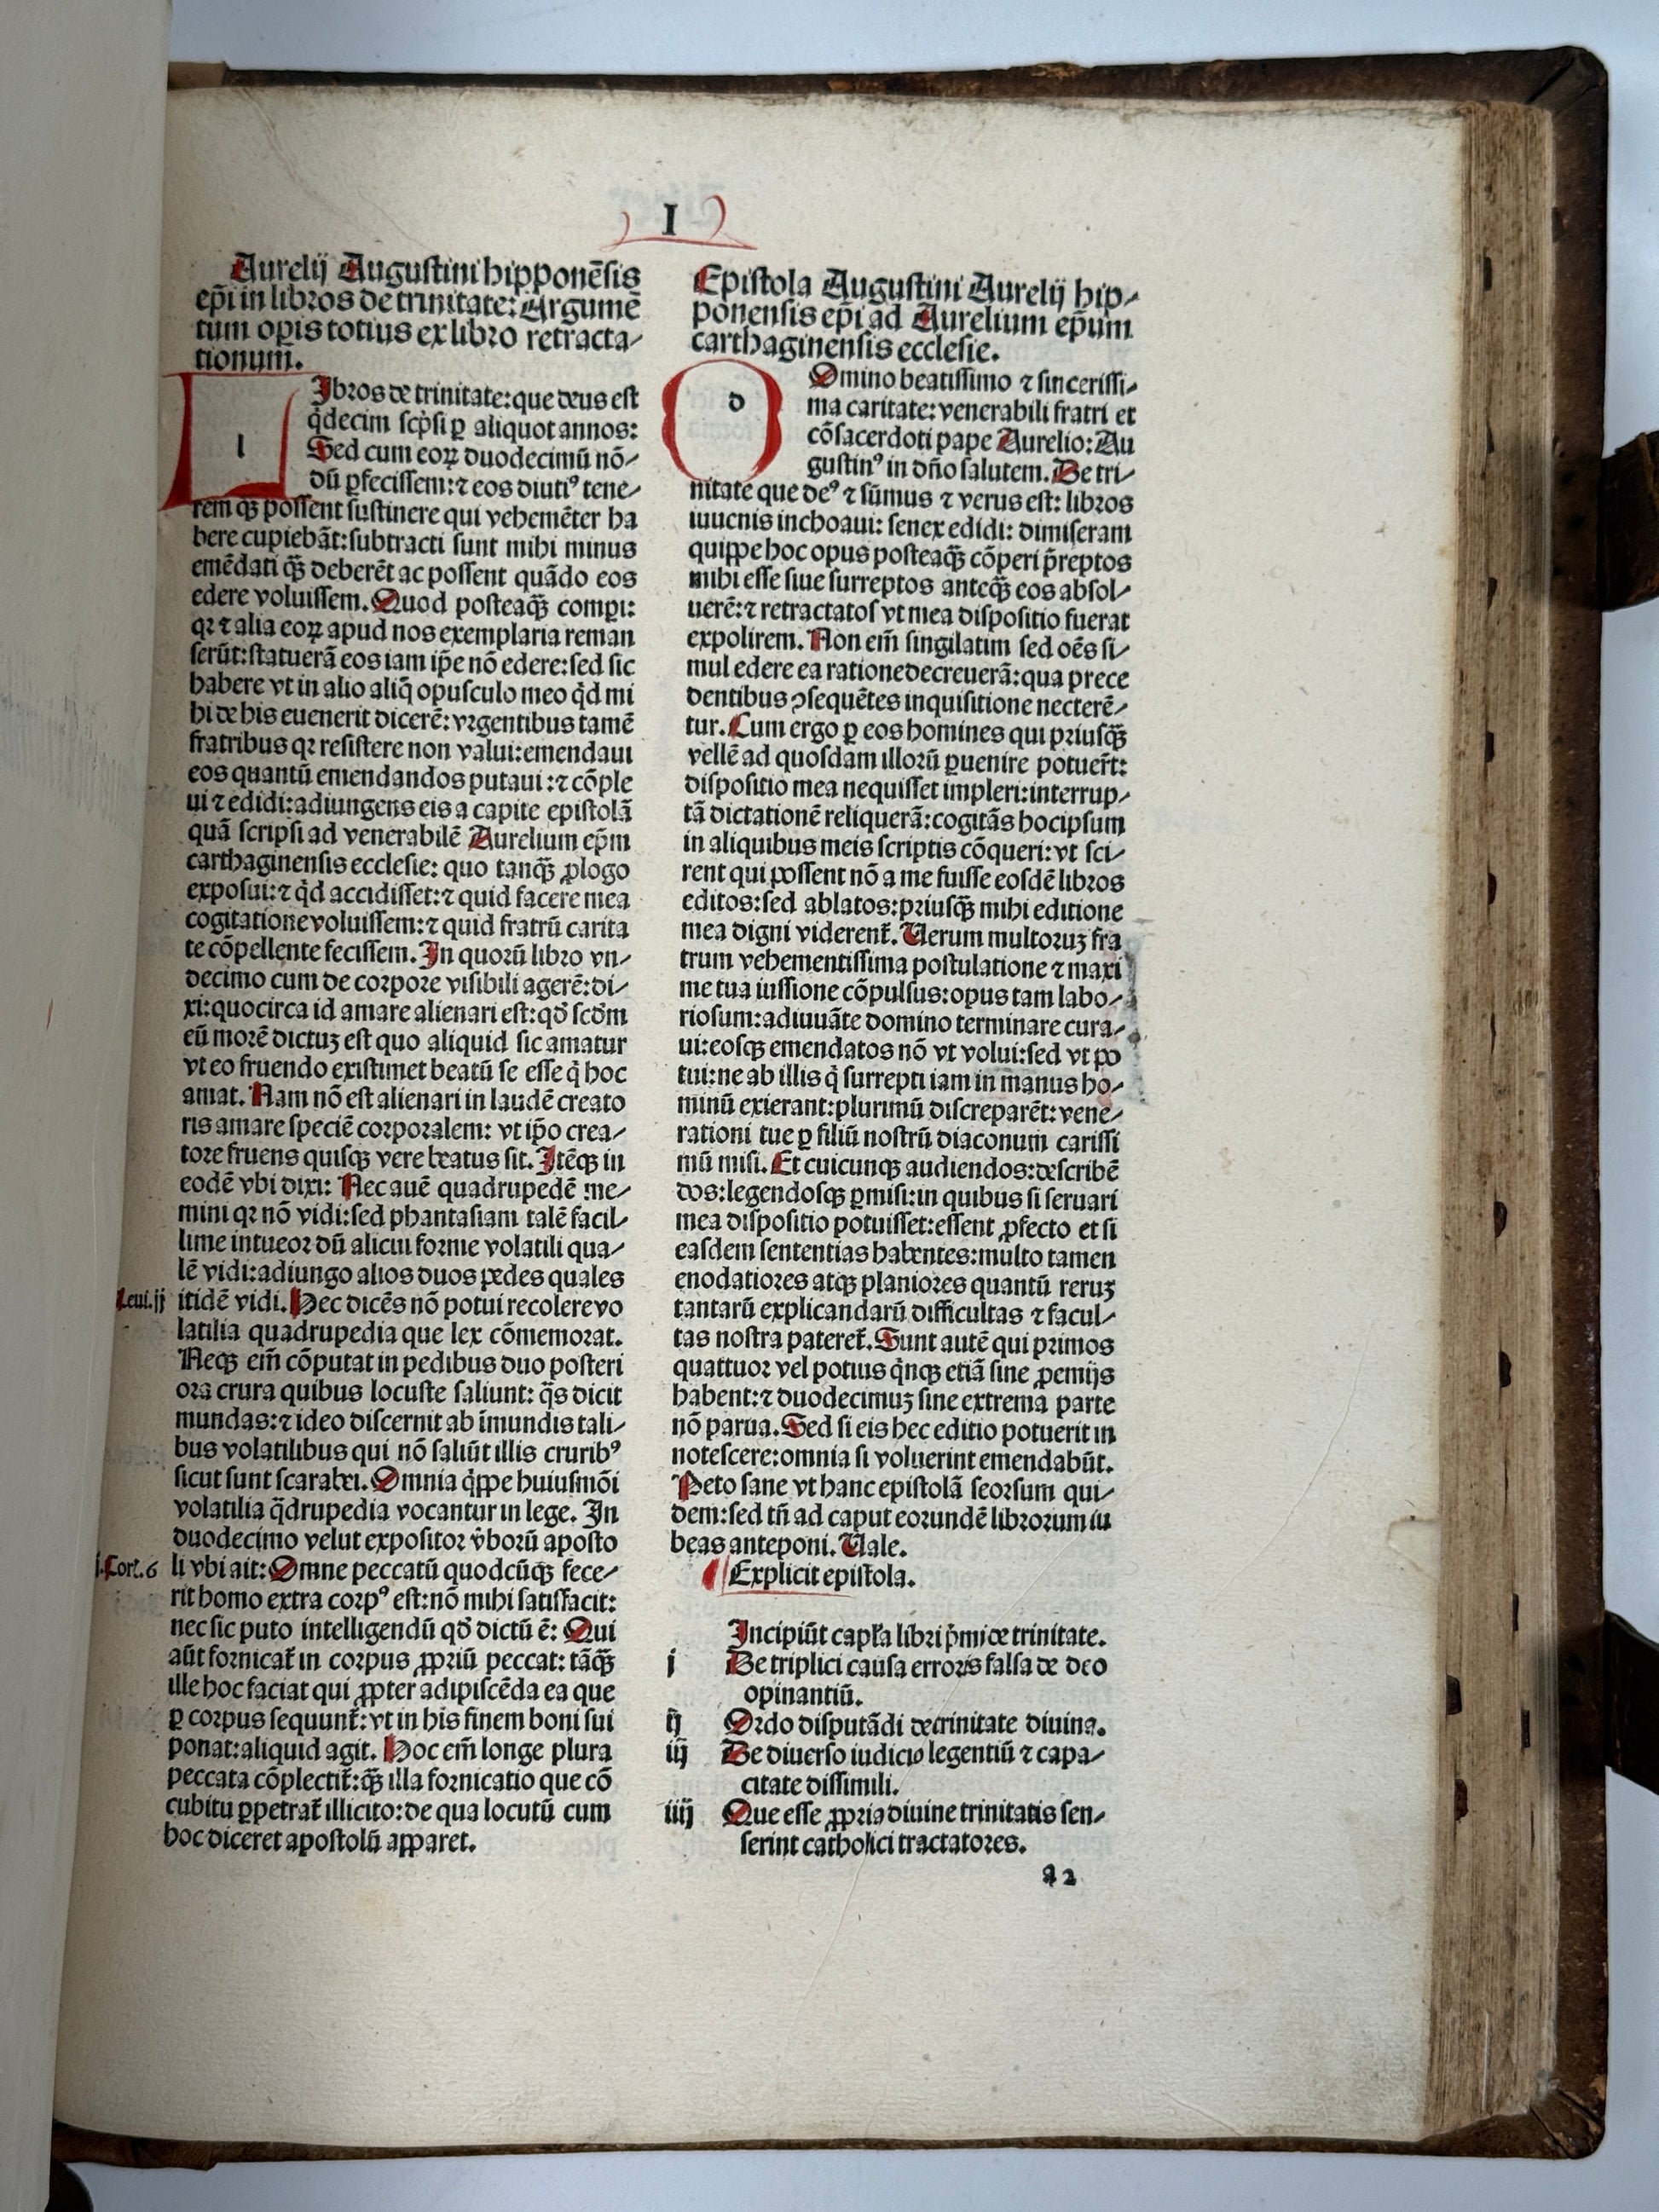 I
Aurelij Augustini hipponēsis
ep̄i in libros de trinitate: Argumē
tum op̲is totius ex libro retracta⸗
tionum.
l
Ibros de trinitate: que deus est
q̇decim scp̍si ꝑ aliquot annos:
Sed cum eoꝝ duodecimū nō⸗
dū ꝑfecissem: ⁊ eos diutiꝰ tene⸗
rem qꝫ possent sustinere qui vehemēter ha
bere cupiebāt: subtracti sunt mihi minus
emēdati qꝫ̄ deberēt ac possent quādo eos
edere voluissem. Quod posteaqꝫ̄ compꝑi:
qꝛ ⁊ alia eoꝝ apud nos exemplaria reman
serūt: statuerā eos iam ip̄e nō edere: sed sic
habere vt in alio aliq̄ opusculo meo q̇d mi
hi de his euenerit dicerē: vrgentibus tamē
fratribus qꝛ resistere non valui: emendaui
eos quantū emendandos putaui: ⁊ cōple
ui ⁊ edidi: adiungens eis a capite epistolā
quā scripsi ad venerabilē Aurelium ep̄m
carthaginensis ecclesie: quo tanqꝫ̄ ꝓlogo
exposui: ⁊ q̇d accidisset: ⁊ quid facere mea
cogitatione voluissem: ⁊ quid fratrū carita
te cōpellente fecissem. In quorū libro vn⸗
decimo cum de corpore visibili agerē: di⸗
xi: quocirca id amare alienari est: qd̄ scd̄m
eū morē dictuꝫ est quo aliquid sic amatur
vt eo fruendo existimet beatū se esse q̇ hoc
amat. Nam nō est alienari in laudē creato
ris amare speciē corporalem: vt ip̄o crea⸗
tore fruens quisqꝫ vere beatus sit. Itēqꝫ in
eodē vbi dixi: Nec auē quadrupedē me⸗
mini qꝛ nō vidi: sed phantasiam talē facil⸗
lime intueor dū alicui forme volatili qua⸗
lē vidi: adiungo alios duos pedes quales
Leui.ij itidē vidi. Hec dicēs nō potui recolere vo
latilia quadrupedia que lex cōmemorat.
Neqꝫ em̄ cōputat in pedibus duo posteri
ora crura quibus locuste saliunt: q̄s dicit
mundas: ⁊ ideo discernit ab īmundis tali⸗
bus volatilibus qui nō saliūt illis cruribꝰ
sicut sunt scarabei. Omnia q̇ppe huiusmōi
volatilia q̄drupedia vocantur in lege. In
duodecimo velut expositor v̄borū aposto
j.Coꝛ̄.6 li vbi ait: Omne peccatū quodcūqꝫ fece⸗
rit homo extra corpꝰ est: nō mihi satisfacit:
nec sic puto intelligendū qd̄ dictū ē: Qui
aūt fornicat̄ in corpus ꝓpriū peccat: tāqꝫ̄
ille hoc faciat qui ꝓpter adipiscēda ea que
ꝑ corpus sequunt̄: vt in his finem boni sui
ponat: aliquid agit. Hoc em̄ longe plura
peccata cōplectit̄: qꝫ̄ illa fornicatio que cō
cubitu ꝑpetrat̄ illicito: de qua locutū cum
hoc diceret apostolū apparet.
Epistola Augustini Aurelij hip⸗
ponensis ep̄i ad Aurelium ep̄um
carthaginensis ecclesie.
d
Omino beatissimo ⁊ sincerissi⸗
ma caritate: venerabili fratri et
cōsacerdoti pape Aurelio: Au
gustinꝰ in dn̄o salutem. De tri⸗
nitate que deꝰ ⁊ sūmus ⁊ verus est: libros
iuuenis inchoaui: senex edidi: dimiseram
quippe hoc opus posteaqꝫ̄ cōperi p̄reptos
mihi esse siue surreptos anteqꝫ̄ eos absol⸗
uerē: ⁊ retractatos vt mea dispositio fuerat
expolirem. Non em̄ singilatim sed oēs si⸗
mul edere ea ratione decreuerā: qua prece
dentibus ꝯsequētes inquisitione necterē⸗
tur. Cum ergo ꝑ eos homines qui priusqꝫ̄
vellē ad quosdam illorū ꝑuenire potuer̄t:
dispositio mea nequisset impleri: interrup⸗
tā dictationē reliquerā: cogitās hocipsum
in aliquibus meis scriptis cōqueri: vt sci⸗
rent qui possent nō a me fuisse eosdē libros
editos: sed ablatos: priusqꝫ̄ mihi editione
mea digni viderent̄. Uerum multoruꝫ fra
trum vehementissima postulatione ⁊ maxi
me tua iussione cōpulsus: opus tam labo⸗
riosum: adiuuāte domino terminare cura⸗
ui: eosqꝫ emendatos nō vt volui: sed vt po
tui: ne ab illis q̇ surrepti iam in manus ho⸗
minū exierant: plurimū discreparēt: vene⸗
rationi tue ꝑ filiū nostrū diaconum carissi
mū misi. Et cuicunqꝫ audiendos: describē
dos: legendosqꝫ ꝑmisi: in quibus si seruari
mea dispositio potuisset: essent ꝓfecto et si
easdem sententias habentes: multo tamen
enodatiores atqꝫ planiores quantū reruꝫ
tantarū explicandarū difficultas ⁊ facul⸗
tas nostra pateret̄. Sunt autē qui primos
quattuor vel potius q̇nqꝫ etiā sine ꝓemijs
habent: ⁊ duodecimuꝫ sine extrema parte
nō parua. Sed si eis hec editio potuerit in
notescere: omnia si voluerint emendabūt.
Peto sane vt hanc epistolā seorsum qui⸗
dem: sed tn̄ ad caput eorundē librorum iu
beas anteponi. Uale.
Explicit epistola.
Incipiūt capl̄a libri p̍mi de trinitate.
j De triplici causa erroris falsa de deo
opinantiū.
ij Ordo disputādi de trinitate diuina.
iij De diuerso iudicio legentiū ⁊ capa⸗
citate dissimili.
iiij Que esse ꝓpria diuine trinitatis sen⸗
serint catholici tractatores.
a 2